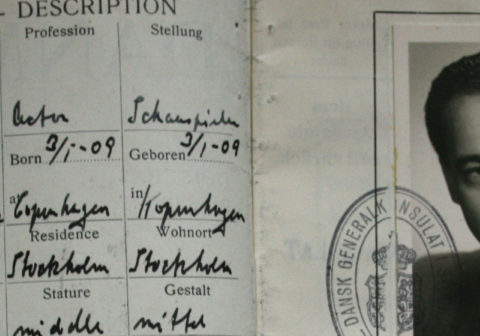 DESCRIPTION
Profession Stellung
Actor Schauspieler
Born 3/1-09 Geboren 3/1-09
a/Copenhagen in/Kopenhagen
Residence Wohnort
Stockholm Stockholm
Stature Gestalt
middle mittel
DANSK GENERALKONSULAT